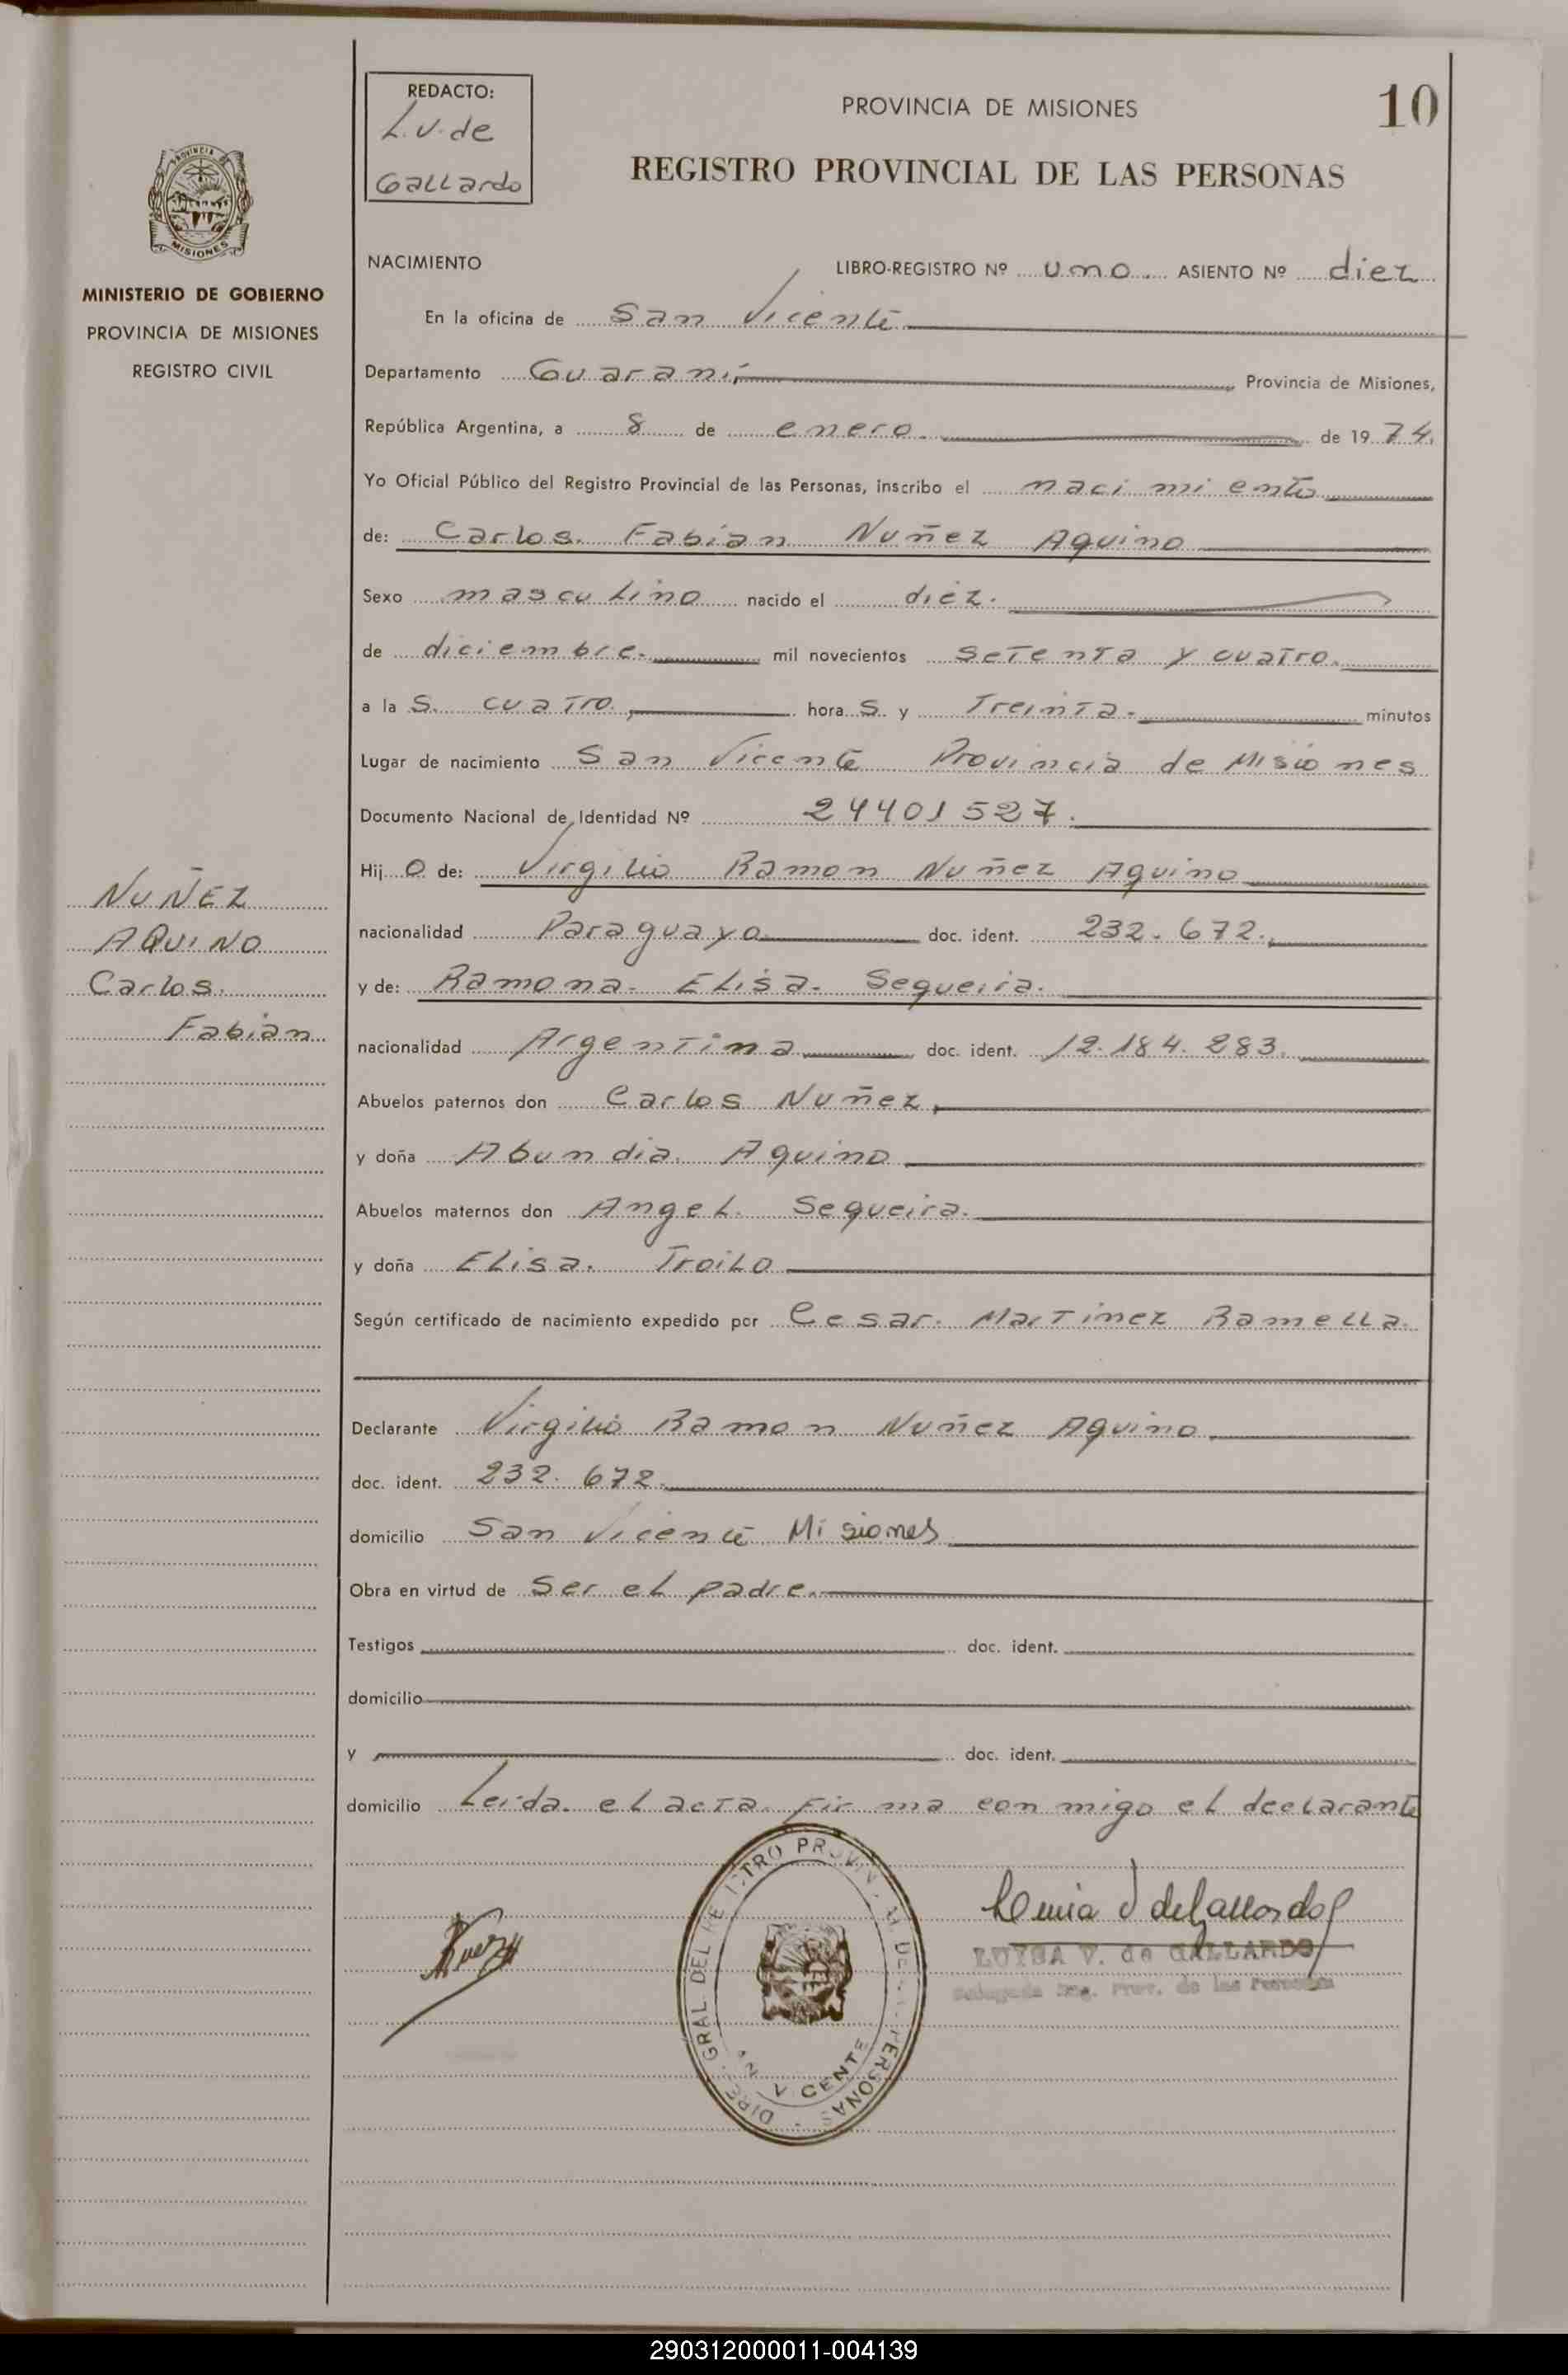 REDACTO:
L.V. de
Gallardo
PROVINCIA DE MISIONES
10
REGISTRO PROVINCIAL DE LAS PERSONAS
PROVINCIA DE
MISIONES
MINISTERIO DE GOBIERNO
PROVINCIA DE MISIONES
REGISTRO CIVIL
NACIMIENTO
LIBRO-REGISTRO Nº uno ASIENTO Nº diez
En la oficina de San Vicente
Departamento Guaraní Provincia de Misiones,
República Argentina, a 8 de enero de 1974.
Yo Oficial Público del Registro Provincial de las Personas, inscribo el nacimiento
de: Carlos Fabián Nuñez Aquino
Sexo masculino nacido el diez
de diciembre mil novecientos setenta y cuatro
a las cuatro horas y Treinta minutos
Lugar de nacimiento San Vicente Provincia de Misiones
Documento Nacional de Identidad Nº 24401527.
Hijo de: Virgilio Ramon Nuñez Aquino
nacionalidad Paraguayo doc. ident. 232.672.
y de: Ramona Elisa Sequeira.
nacionalidad Argentina doc. ident. 12.184.283.
Abuelos paternos don Carlos Nuñez
y doña Abundia Aquino
Abuelos maternos don Angel Sequeira.
y doña Elisa Troilo
Según certificado de nacimiento expedido por Cesar Martinez Ramella.
Declarante Virgilio Ramon Nuñez Aquino
doc. ident. 232.672.
domicilio San Vicente Misiones
Obra en virtud de Ser el padre.
Testigos doc. ident.
domicilio
y doc. ident.
domicilio Leída el acta firma conmigo el declarante
NUÑEZ
AQUINO
Carlos
Fabián
LUISA V. de GALLARDO
Delegada Reg. Prov. de las Personas
290312000011-004139